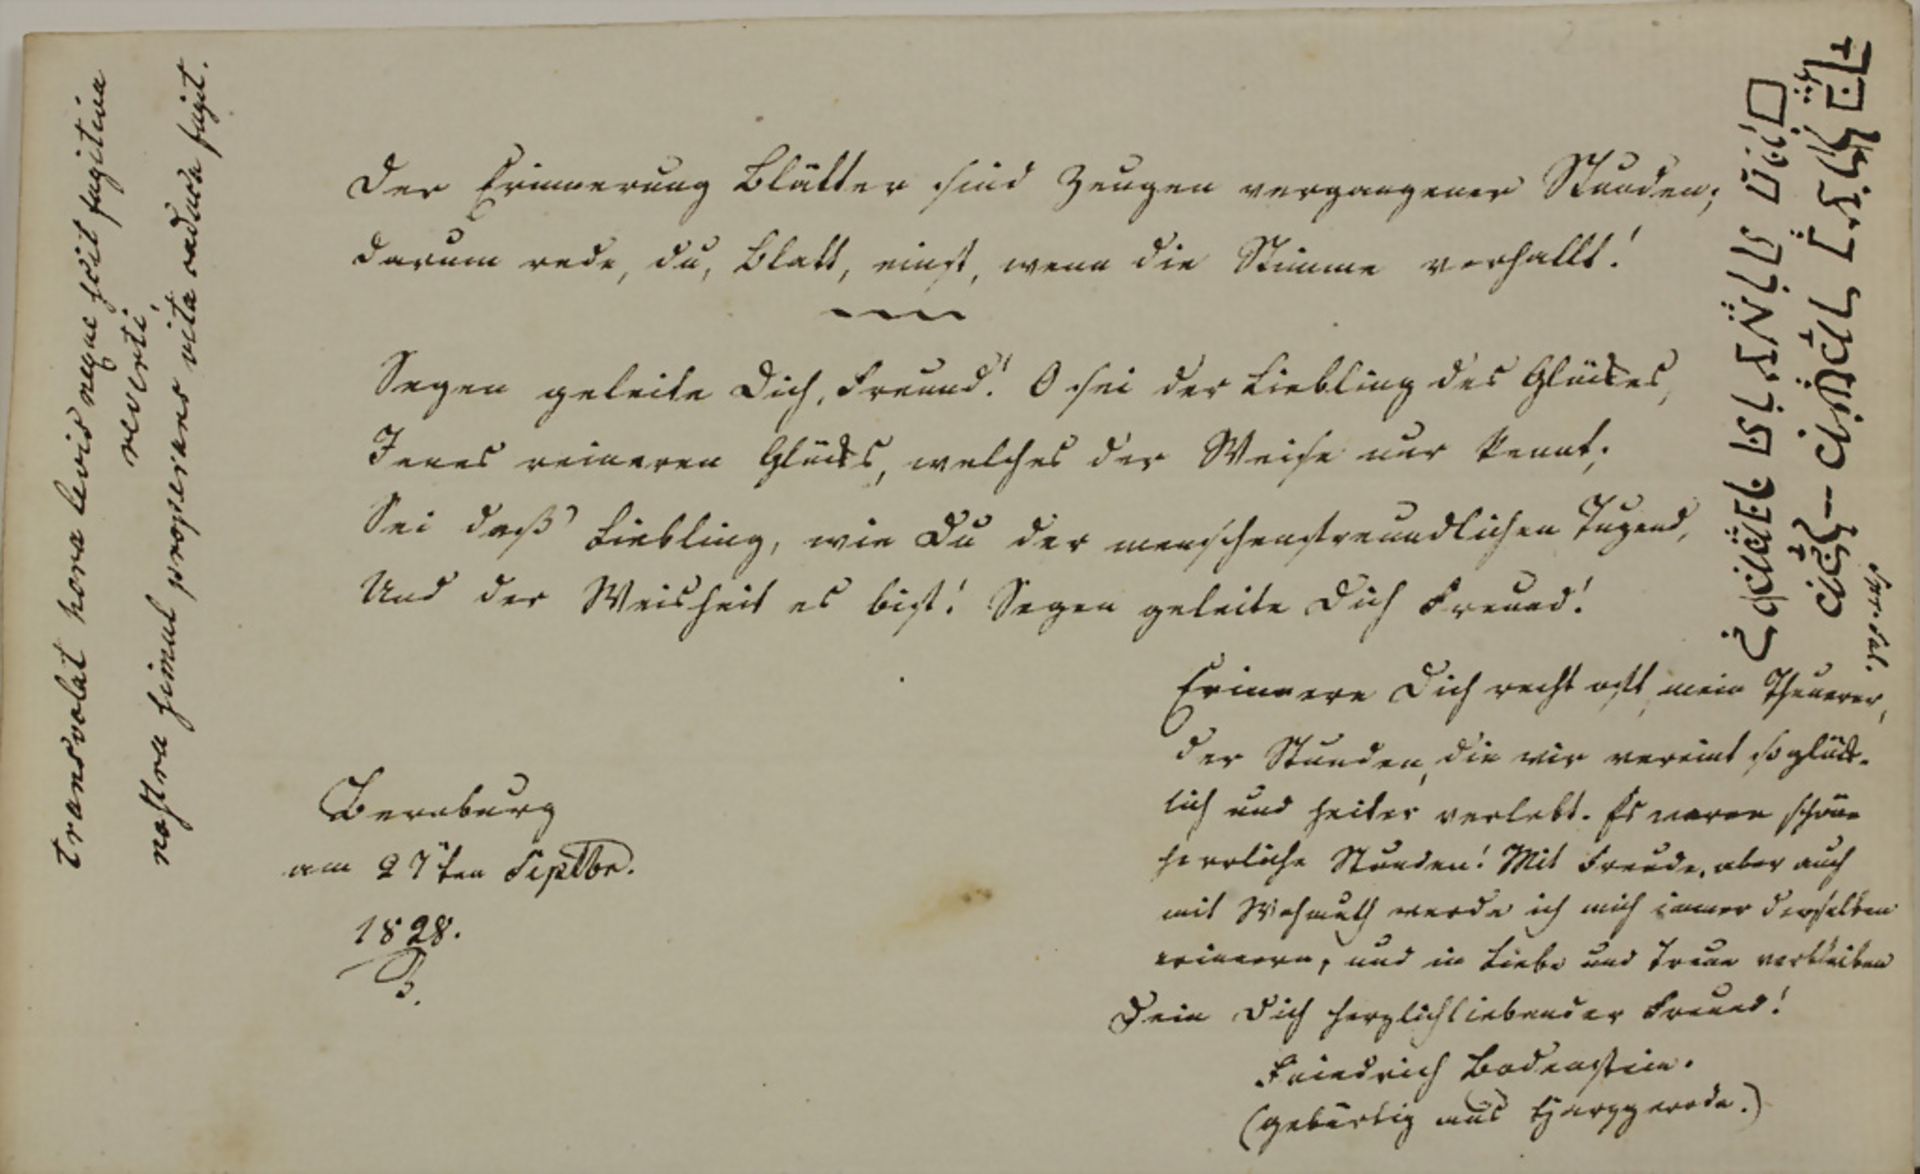 transvolat hora levis neque scit fugitiva
reverti,
nostra simul properans vita caduca fugit.
Der Erinnerung Blätter sind Zeugen vergangener Stunden;
darum rede, du, Blatt, einst, wenn die Stimme verhallt!
Segen geleite Dich, Freund! O sei der Liebling des Glückes,
Jenes reineren Glücks, welches der Weise nur kennt;
Sei deß' Liebling, wie Du der menschenfreundlichen Tugend,
Und der Weisheit es bist! Segen geleite Dich Freund!
Erinnere Dich recht oft, mein Theurer,
der Stunden, die wir vereint so glück-
lich und heiter verlebt. Es waren schöne
herrliche Stunden! Mit Freude, aber auch
mit Wehmuth werde ich mich immer derselben
erinnern, und in Liebe und Treue verbleiben
Dein Dich herzlichliebender Freund!
Friedrich Bodenstein.
(gebürtig aus Harzgerode.)
Bernburg
am 27ten Septbr.
1828.